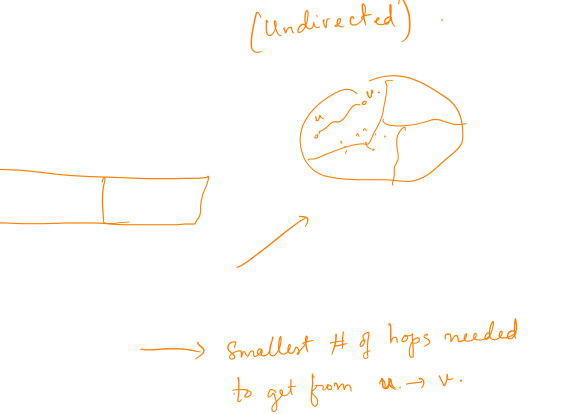 (Undirected).
v.
u
smallest # of hops needed
to get from u. → v.